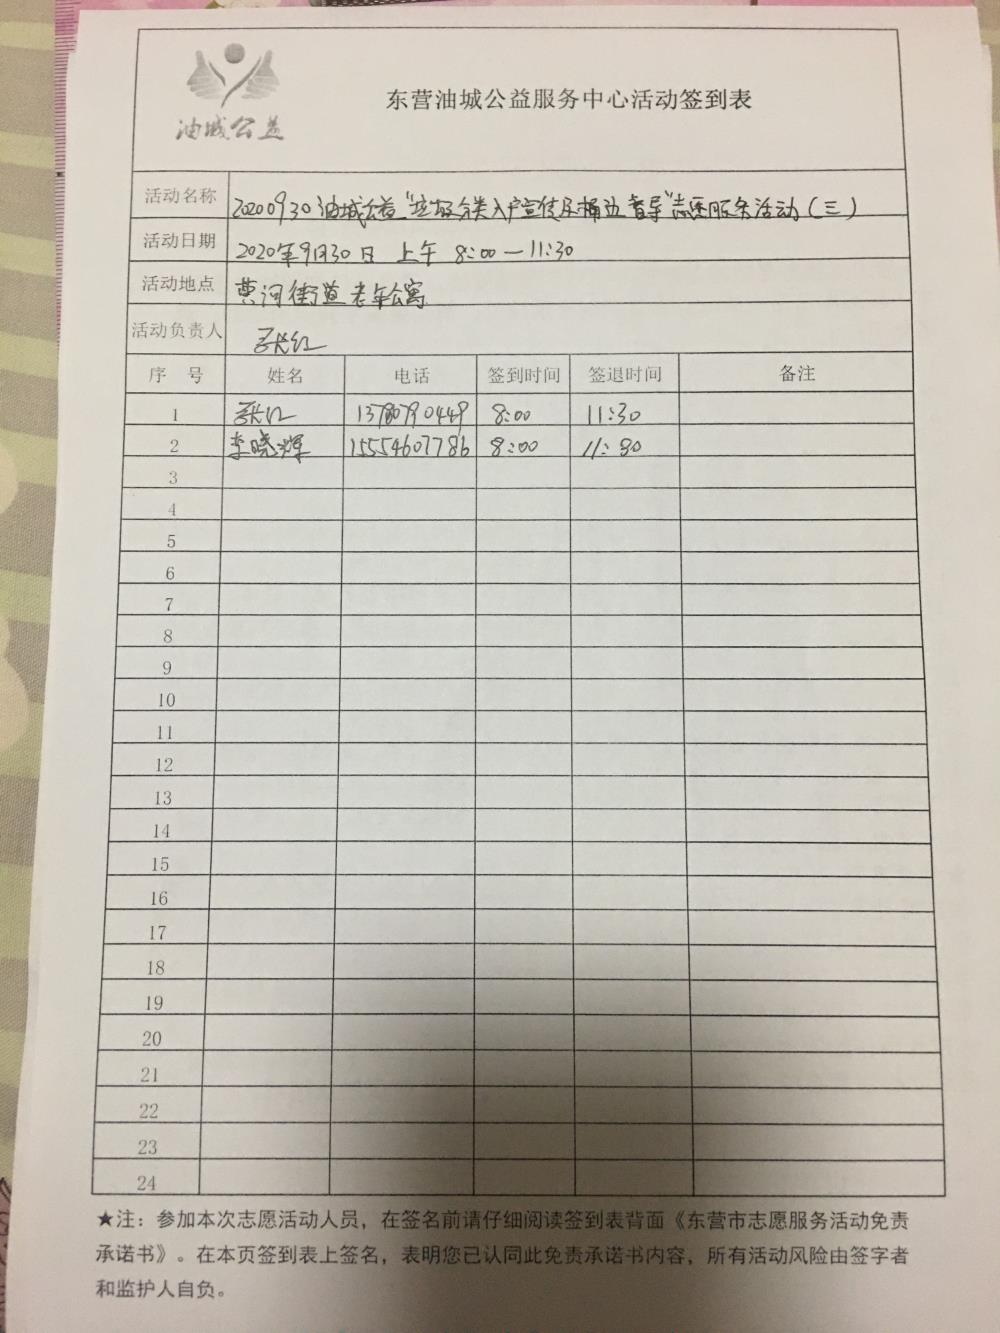 油城公益
东营油城公益服务中心活动签到表
活动名称 20200930油城公益“垃圾分类入户宣传及桶边督导”志愿服务活动(三)
活动日期 2020年9月30日 上午 8:00—11:30
活动地点 黄河街道老年公寓
活动负责人
序 号 姓名 电话 签到时间 签退时间 备注
1 8:00 11:30
2 李晓辉 15554607786 8:00 11:30
3
4
5
6
7
8
9
10
11
12
13
14
15
16
17
18
19
20
21
22
23
24
★注：参加本次志愿活动人员，在签名前请仔细阅读签到表背面《东营市志愿服务活动免责
承诺书》。在本页签到表上签名，表明您已认同此免责承诺书内容，所有活动风险由签字者
和监护人自负。